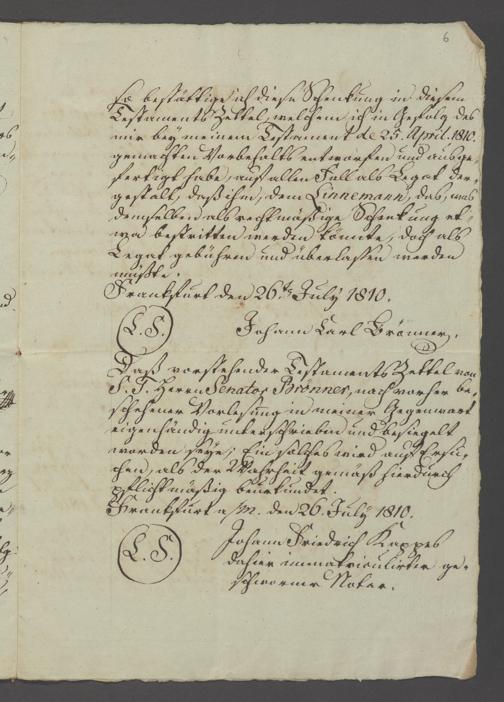 6
so bestättige ich diese Schenkung in diesem
Testaments Zettel, welchen ich in Gefolg des
mir bey meinem Testament de 25. April. 1810.
gemachten Vorbehalts entworfen und ausge-
fertigt habe, auf allen Fall als Legat der-
gestalt, daß ihm, dem Linnemann, das, was
demselben als rechtmäßige Schenkung et-
wa bestritten werden könnte, doch als
Legat gebühren und überlassen werden
müßte.
Frankfurt den 26ten July 1810.
L. S. Johann Carl Brönner.
Daß vorstehender Testaments Zettel von
S. T. Herrn Senator Brönner, nach vorher be-
schehener Vorlesung in meiner Gegenwart
eigenhändig unterschrieben und besiegelt
worden seye; Ein solches wird auf Ersu-
chen, als der Wahrheit gemäß hierdurch
pflichtmäßig beurkundet.
Frankfurt a/m. den 26. July 1810.
L. S. Johann Friedrich Kappes
dahier immatriculirter ge-
schworner Notar.